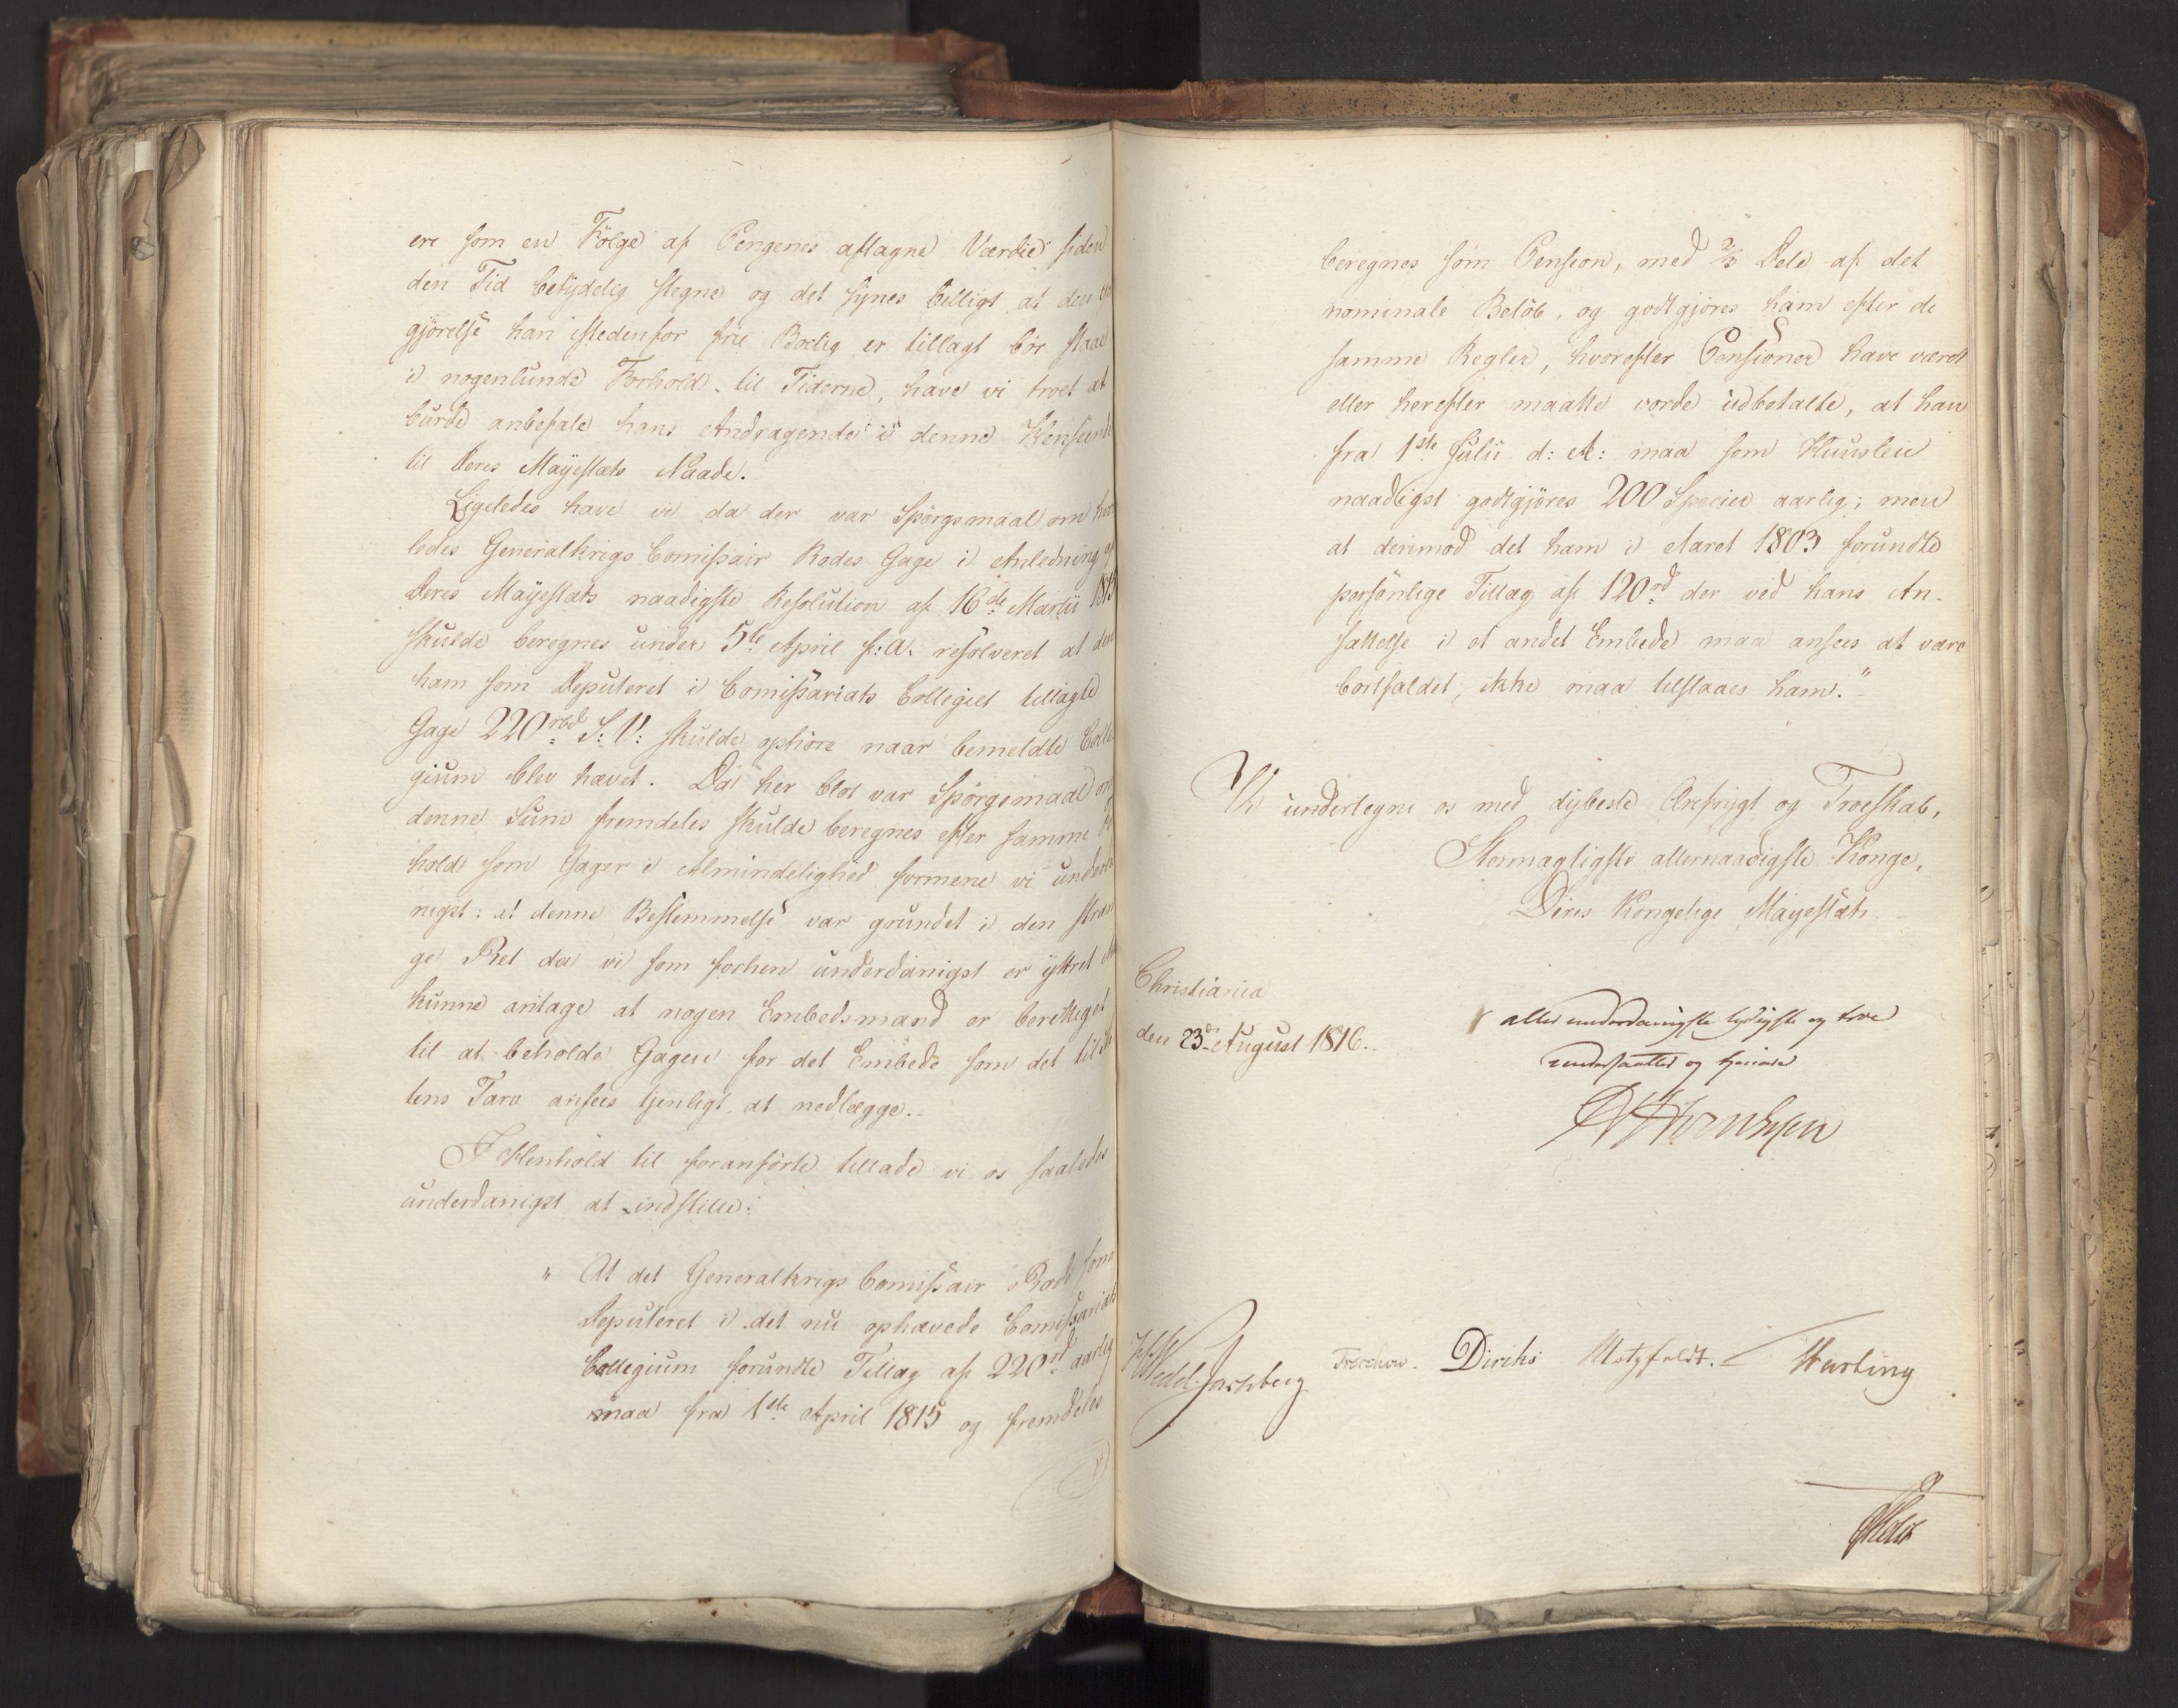 ere som en Følge af Pengenes aftagne Værdie siden
den Tid betydelig stegne og det synes billigt at den
gjørelse han istedenfor frie Boelig er tillagt bør staae
i nogenlunde Forhold til Tiderne, have vi troet at
burde anbefale hans Andragende i denne Henseende
til Deres Mayestæts Naade.
Ligeledes have vi da der var Spørgsmaal om hvor
ledes Generalkrigs Comissair Rodes Gage i Anledning af
Deres Mayestæts naadigste Resolution af 16de Martii 1815
skulde beregnes under 5te April f: A: resolveret at den
ham som Deputeret i Comissariats Collegiet tillagte
Gage 220 rbd S: V: skulde ophøre naar bemeldte Colle
gium blev hævet. Da her blot var Spørgsmaal om
denne Sum fremdeles skulde beregnes efter samme
hold som Gager i Almindelighed formene vi underda
nigst: at denne Bestemmelse var grundet i den stran
ge Ret da vi som forhen underdanigst er yttret
kunne antage at nogen Embedsmand er berettiget
til at beholde Gagen for det Embede som det til Sta
tens Tarv ansees tjenligt at nedlægge.
I Henhold til foranførte tillade vi os saaledes
underdanigst at indstille:
" At det Generalkrigs Comissair Rode som
Deputeret i det nu ophævede Comissariats
Collegium forundte Tillæg af 220 rd aarlig
maa fra 1ste April 1815 og fremdeles
beregnes som Pension, med 2/3 Dele af det
nominale Beløb, og godtgjøres ham efter de
samme Regler, hvorefter Pensioner have været
eller herefter maatte vorde udbetalte, at han
fra 1ste Julii d: A: maa som Huusleie
naadigst godtgjøres 200 Specier aarlig; men
at derimod det ham i Aaret 1803 forundte
personlige Tillæg af 120 rd der ved hans An-
sættelse i et andet Embede maa ansees at være
bortfaldet, ikke maa tilstaaes ham."
Vi undertegne os med dybeste Ærefrygt og Troeskab,
Stormægtigste allernaadigste Konge,
Deres Kongelige Mayestæts
Christiania
den 23de August 1816.
allerunderdanigste lydigste og troe
undersaatter og tjenere
Hornhjem
Wedel Jarlsberg Treschow. Diriks Motzfeldt. Harting
Holst